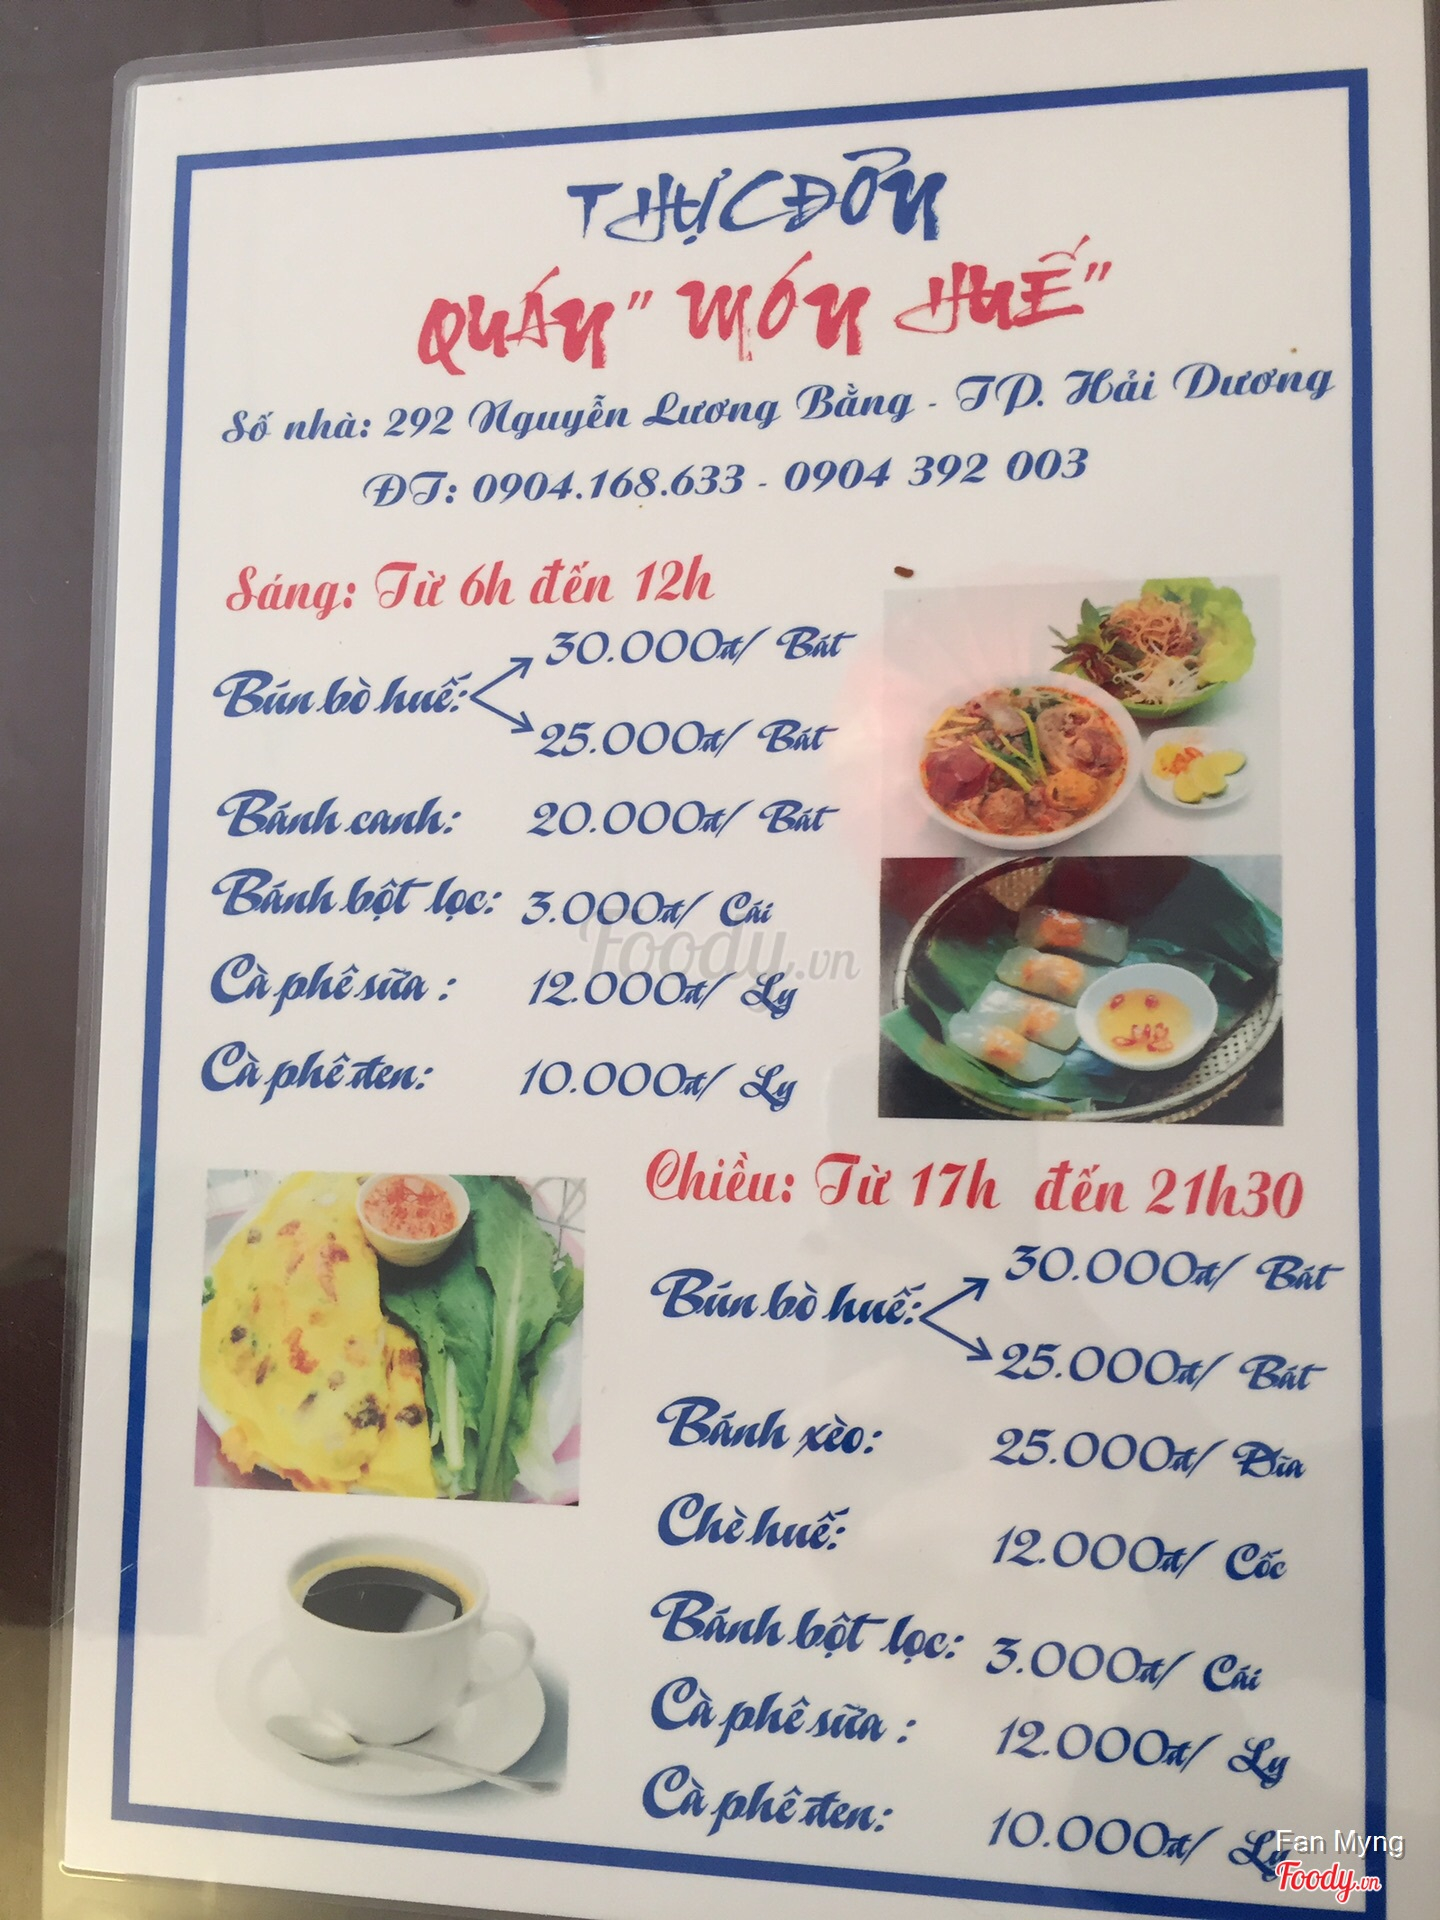 THỰC ĐƠN
QUÁN" MÓN HUẾ"
Số nhà: 292 Nguyễn Lương Bằng - TP. Hải Dương
ĐT: 0904.168.633 - 0904 392 003
Sáng: Từ 6h đến 12h
30.000đ/ Bát
Bún bò huế:
25.000đ/ Bát
Bánh canh: 20.000đ/ Bát
Bánh bột lọc: 3.000đ/ Cái
Foody.vn
Cà phê sữa : 12.000đ/ Ly
Cà phê đen: 10.000đ/ Ly
Chiều: Từ 17h đến 21h30
30.000đ/ Bát
Bún bò huế:
25.000đ/ Bát
Bánh xèo: 25.000đ/ Đĩa
Chè huế: 12.000đ/ Cốc
Bánh bột lọc: 3.000đ/ Cái
Cà phê sữa : 12.000đ/ Ly
Cà phê đen: 10.000đ/ Ly
Fan Myng
Foody.vn